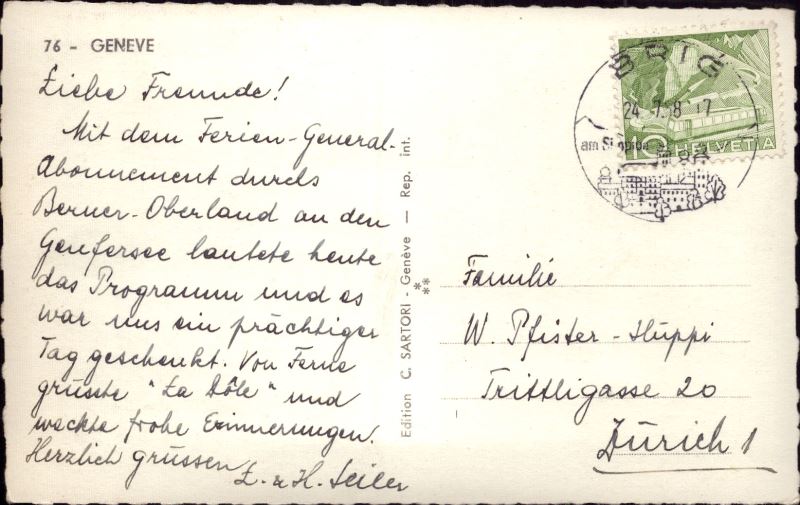 76 - GENEVE
Liebe Freunde!
Mit dem Ferien-General-
Abonnement durchs
Berner-Oberland an den
Genfersee lautete heute
das Programm und es
war uns ein prächtiger
Tag geschenkt. Von Ferne
grüsste "La Dôle" und
weckte frohe Erinnerungen.
Herzlich grüssen
E. & H. Seiler
Edition C. SARTORI - Genève — Rep. int.
BRIG
24.7.58 17
am Simplon
10 HELVETIA
Familie
W. Pfister-Huppi
Trittligasse 20
Zürich 1